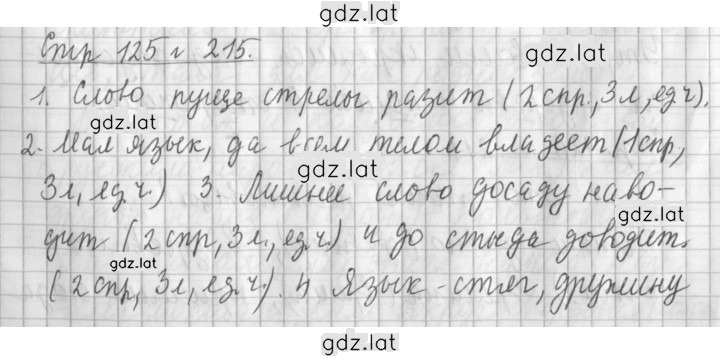 gdz.lat
Стр 125 г 215.
gdz.lat
1. Слово пуще стрелы разит (2 спр., 3 л, ед.ч.).
gdz.lat
2. Мал язык, да всем телом владеет (1 спр,
gdz.lat
3 л, ед.ч.) 3. Лишнее слово досаду наво-
gdz.lat
дит (2 спр, 3 л., ед.ч.) и до стыда доводит.
gdz.lat
(2 спр, 3 л, ед.ч.). 4 Язык - стяг, дружину
gdz.lat